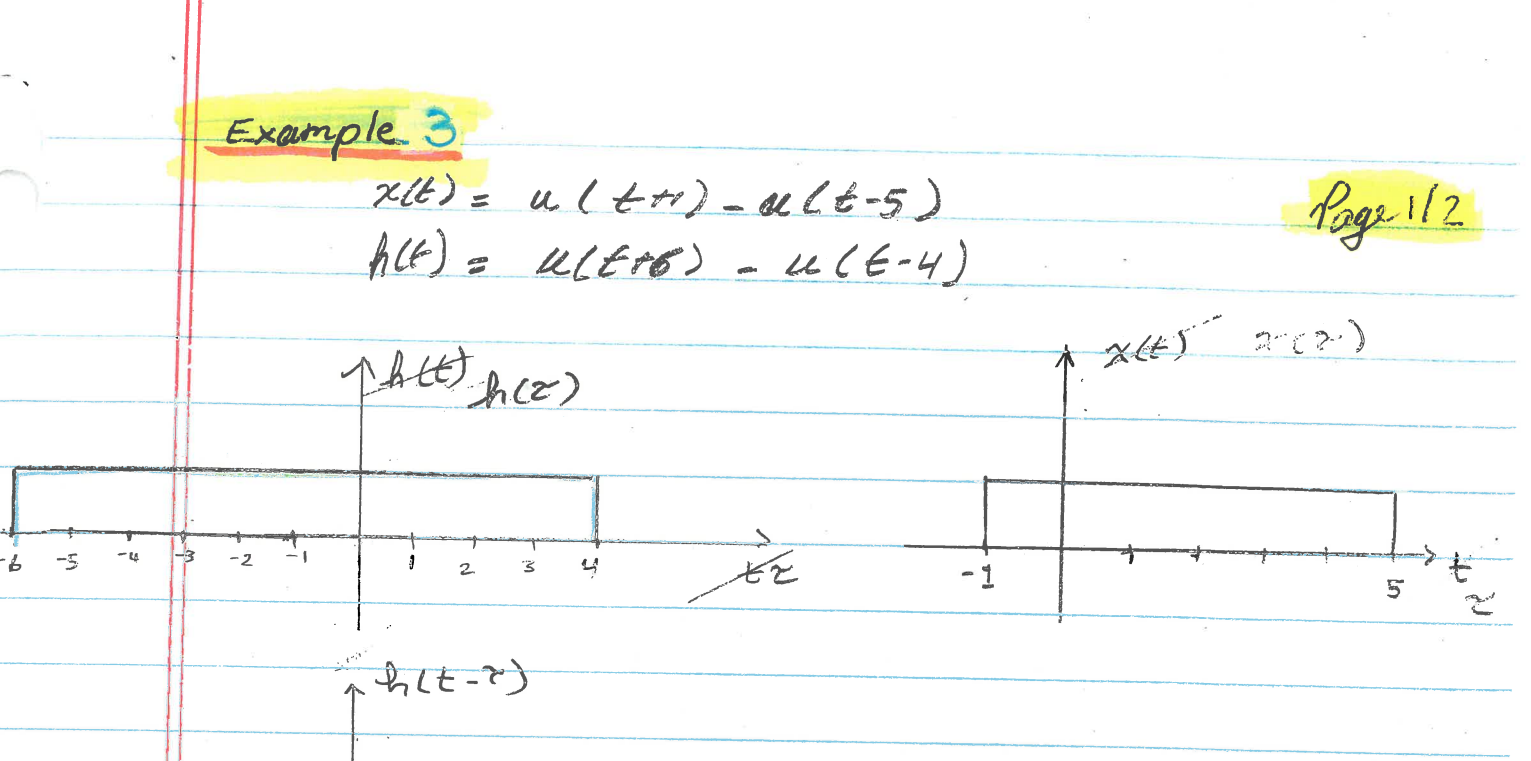 Example 3
x(t) = u(t+1) - u(t-5)
Page 1/2
h(t) = u(t+6) - u(t-4)
h(t) h(τ)
x(t) x(τ)
-6 -5 -4 -3 -2 -1 1 2 3 4
t τ
-1 5 t
τ
h(t-τ)